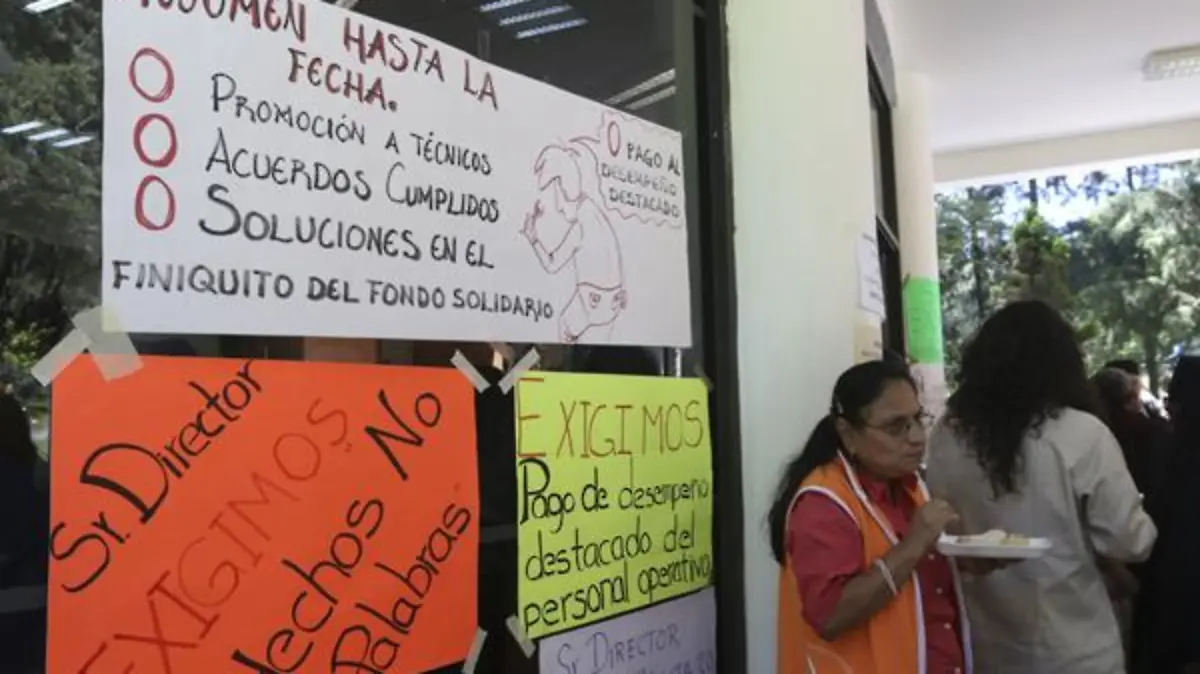 RESUMEN HASTA LA
FECHA.
0 PROMOCIÓN A TÉCNICOS
0 ACUERDOS CUMPLIDOS
0 SOLUCIONES EN EL
FINIQUITO DEL FONDO SOLIDARIO
0 PAGO AL
DESEMPEÑO
DESTACADO
Sr. Director
EXIGIMOS
Hechos No
Palabras.
EXIGIMOS
Pago de desempeño
destacado del
personal operativo
Sr DIRECTOR